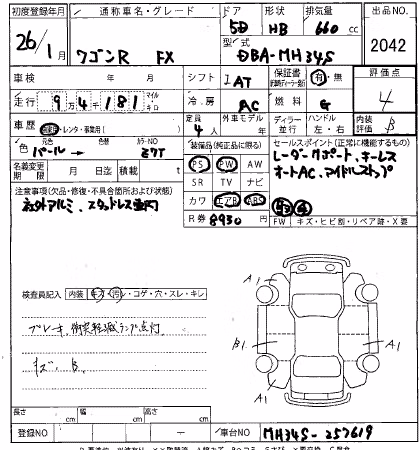 初度登録年月 通称車名・グレード ドア 形状 排気量 出品NO
26/1月 ワゴンR FX 5D HB 660cc 2042
型式
DBA-MH34S
車検 年 月 シフト IAT 保証書 有・無 評価点
走行 9万4千181 マイル キロ 冷房 AC 燃料 G 4
車歴 自家用・レンタ・事業用( ) 定員 4人 外車モデル ディーラー・並行 ハンドル 左・右 内装 B
色 パール→ 色替 カラーNO Z7T
装備品(純正品に限る)
セールスポイント(正常に機能するもの)
名義変更期限 月 日迄 積載 t
PS PW AW
レーダーサポート、キーレス
SR TV ナビ
オートAC、アイドルストップ
注意事項(欠品・修復・不具合箇所および状態)
カワ エアB ABS
社外アルミ、スタッドレス
R券 8930
FW キズ・ヒビ割・リペア跡・X要
検査員記入 内装 キズ・汚レ・コゲ・穴・スレ・キレ
A1
ブレーキ、衝突軽減ランプ点灯
B1 A1
キズ、B
A1 A1
長さ cm 幅 cm 高さ cm
登録NO ー 車台NO MH34S-257619